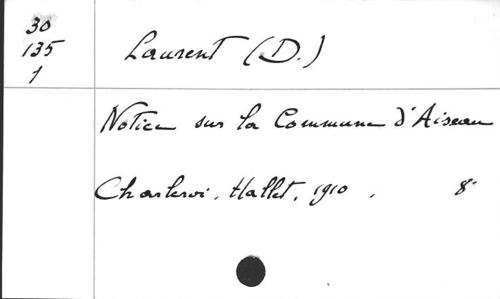 30
135
1
Laurent (D.)
Notice sur la Commune d'Aiseau
Charleroi, Hallet, 1910. 8°